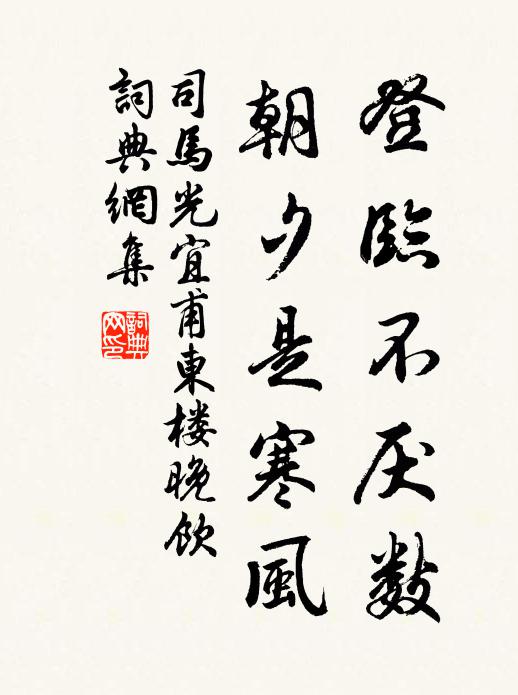 登臨不厌数
朝夕是寒風
司馬光宜甫東楼晚飲
詞典網集
詞典
网印